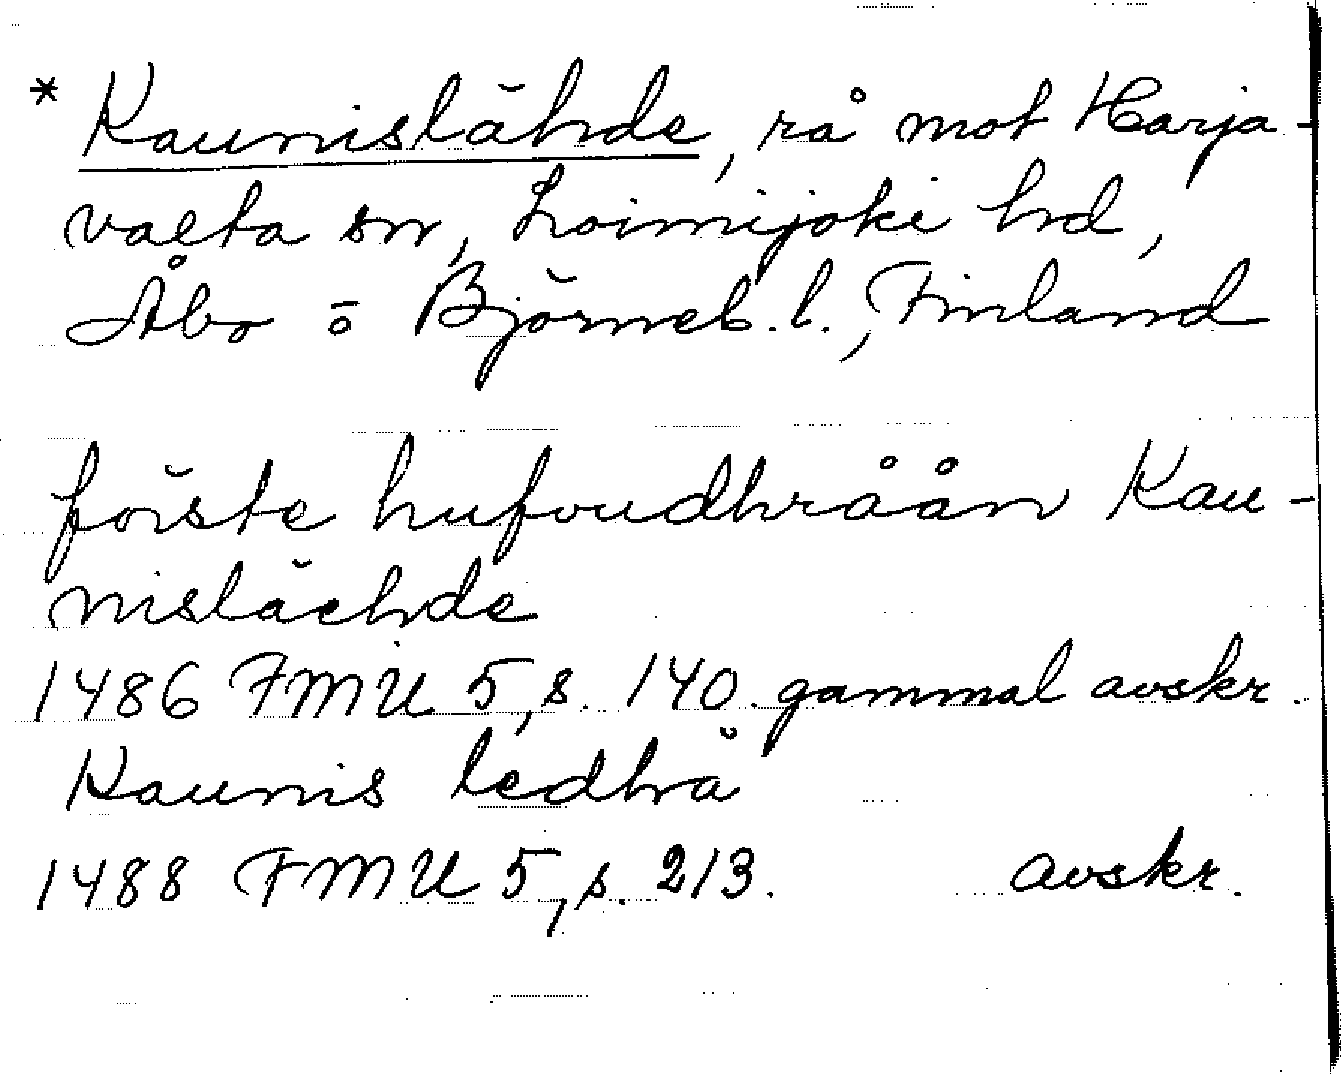 * Kaunislähde, rå mot Harja-
valta sn, Loimijoki hd,
Åbo o Björneb. l., Finland
förste hufvudhråån Kau-
nisläehde
1486 FMU 5, s. 140 gammal avskr.
Kaunis ledhrä
1488 FMU 5, s. 213. avskr.